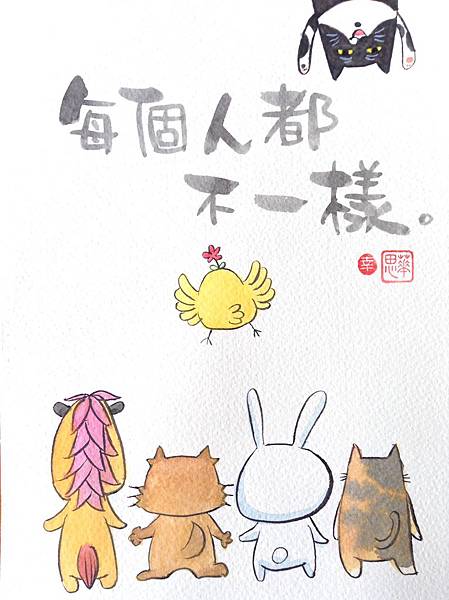 每個人都
不一樣。
幸 思華